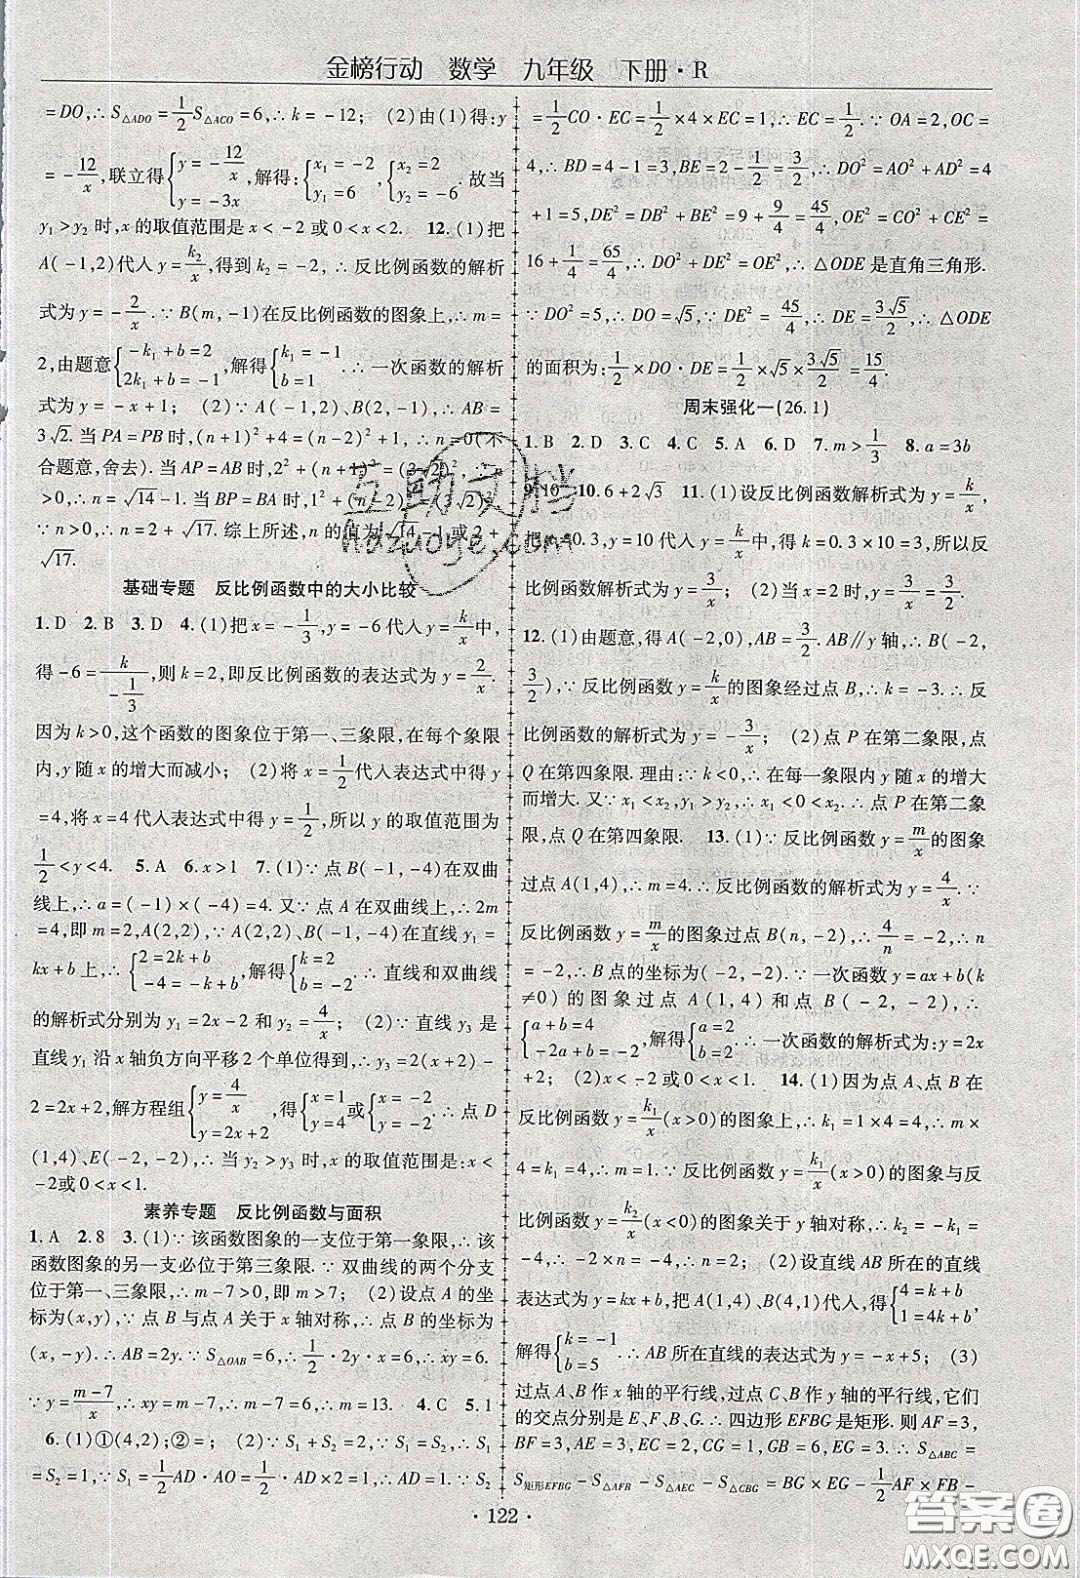 金榜行动 数学 九年级 下册·R
=DO,∴S△ADO=1/2S△ACO=6,∴k=-12; (2)由(1)得:y
=-12/x,联立得{y=-12/x, y=-3x,解得:{x₁=-2, y₁=6 ,{x₂=2, y₂=-6. 故当
y₁>y₂时,x的取值范围是x<-2或0<x<2. 12.(1)把
A(-1,2)代入y=k₂/x,得到k₂=-2,∴反比例函数的解析
式为y=-2/x.∵B(m,-1)在反比例函数的图象上,∴m=
2,由题意{-k₁+b=2, 2k₁+b=-1,解得{k₁=-1, b=1 .∴一次函数的解析
式为y=-x+1; (2)∵A(-1,2)、B(2,-1),∴AB=
3√2. 当PA=PB时,(n+1)²+4=(n-2)²+1,∴n=0(不
合题意,舍去). 当AP=AB时,2²+(n+1)²=(3√2)²,∵n
>0,∴n=√14-1. 当BP=BA时,1²+(n-2)²=(3√2)²,
∵n>0,∴n=2+√17. 综上所述,n的值为√14-1或2+
√17.
基础专题 反比例函数中的大小比较
1.D 2.B 3.D 4.(1)把x=-1/3,y=-6代入y=k/x中,
得-6=k/(-1/3),则k=2,即反比例函数的表达式为y=2/x.∵
因为k>0,这个函数的图象位于第一、三象限,在每个象限
内,y随x的增大而减小; (2)将x=1/2代入表达式中得y
=4,将x=4代入表达式中得y=1/2,所以y的取值范围为
1/2<y<4. 5.A 6.x>1 7.(1)∵点B(-1,-4)在双曲
线上,∴a=(-1)×(-4)=4. 又∵点A在双曲线上,∴2m
=4,即m=2,A(2,2),∵A(2,2)、B(-1,-4)在直线y₁=
kx+b上,∴{2=2k+b, -4=-k+b,解得{k=2, b=-2 ∴直线和双曲线
的解析式分别为y₁=2x-2和y=4/x; (2)∵直线y₃是
直线y₁沿x轴负方向平移2个单位得到,∴y₃=2(x+2)-
2=2x+2,解方程组{y=4/x, y=2x+2,得{x=1, y=4或{x=-2, y=-2.∴点D
(1,4)、E(-2,-2),∴当y₂>y₃时,x的取值范围是:x<
-2或0<x<1.
素养专题 反比例函数与面积
1.A 2.8 3.(1)∵该函数图象的一支位于第一象限,∴该
函数图象的另一支必位于第三象限.∵双曲线的两个分支
位于第一、三象限,∴m-7>0,即m>7; (2)设点A的坐
标为(x,y),∵点B与点A关于x轴对称,∴点B的坐标为
(x,-y).∴AB=2y.∵S△OAB=6,∴1/2·2y·x=6,∴xy=6.
∵y=(m-7)/x,∴xy=m-7=6,∴m=13. 4.C 5.1
6.(1)①(4,2);②=; (2)∵S₁+S₂=2,∴S₁=S₂,∴S₁
=S₂=1,∴S₁=1/2AD·AO=1/2AD×2=1,∴AD=1,∵S₂
=1/2CO·EC=1/2×4×EC=1,∴EC=1/2.∵OA=2,OC=
4,∴BD=4-1=3,BE=2-1/2=3/2,∴DO²=AO²+AD²=4
+1=5,DE²=DB²+BE²=9+9/4=45/4,OE²=CO²+CE²=
16+1/4=65/4,∴DO²+DE²=OE²,∴△ODE是直角三角形.
∵DO²=5,∴DO=√5,∵DE²=45/4,∴DE=3√5/2,∴△ODE
的面积为:1/2×DO·DE=1/2×√5×3√5/2=15/4.
周末强化一(26.1)
1.B 2.D 3.C 4.C 5.A 6.D 7.m>1/3 8.a=3b
9.10 10.6+2√3 11.(1)设反比例函数解析式为y=k/x,
把x=0.3,y=10代入y=k/x,得k=0.3×10=3,所以反
比例函数解析式为y=3/x; (2)当x=2时,y=3/x=3/2.
12.(1)由题意,得A(-2,0),AB=3/2. AB∥y轴,∴B(-2,
3/2),∵反比例函数y=k/x的图象经过点B,∴k=-3.∴反
比例函数的解析式为y=-3/x; (2)点P在第二象限,点
Q在第四象限. 理由:∵k<0,∴在每一象限内y随x的增大
而增大. 又∵x₁<x₂,y₁>y₂,∴x₁<0<x₂,∴点P在第二象
限,点Q在第四象限. 13.(1)∵反比例函数y=m/x的图象
过点A(1,4),∴m=4.∴反比例函数的解析式为y=4/x.∵
反比例函数y=m/x的图象过点B(n,-2),∴4/n=-2,∴n
=-2,∴B点的坐标为(-2,-2)∵一次函数y=ax+b(k
≠0)的图象过点A(1,4)和点B(-2,-2),∴
{a+b=4, -2a+b=-2,解得{a=2, b=2.∴一次函数的解析式为:y=2x
+2; (2)-2<x<0或x>1. 14.(1)因为点A、点B在
反比例函数y=k₁/x(x>0)的图象上,∴k₁=1×4=4,∴m×
4=k₁=4,∴m=1.∵反比例函数y=k₁/x(x>0)的图象与反
比例函数y=k₂/x(x<0)的图象关于y轴对称,∴k₂=-k₁=
-4,∴-2×n=-4,∴n=2; (2)设直线AB所在的直线
表达式为y=kx+b,把A(1,4)、B(4,1)代入,得{4=k+b, 1=4k+b,
解得{k=-1, b=5 ∴AB所在直线的表达式为y=-x+5; (3)
过点A、B作x轴的平行线,过点C、B作y轴的平行线,它们
的交点分别是E、F、B、G,∴四边形EFBG是矩形. 则AF=3,
BF=3,AE=3,EC=2,CG=1,GB=6,EG=3,∴S△ABC=
S矩形EFBG-S△AFB-S△AEC-S△CBG=BG×EG-1/2AF×FB-
·122·
互助文档
hozuoye.com
答案圈
MXQE.COM